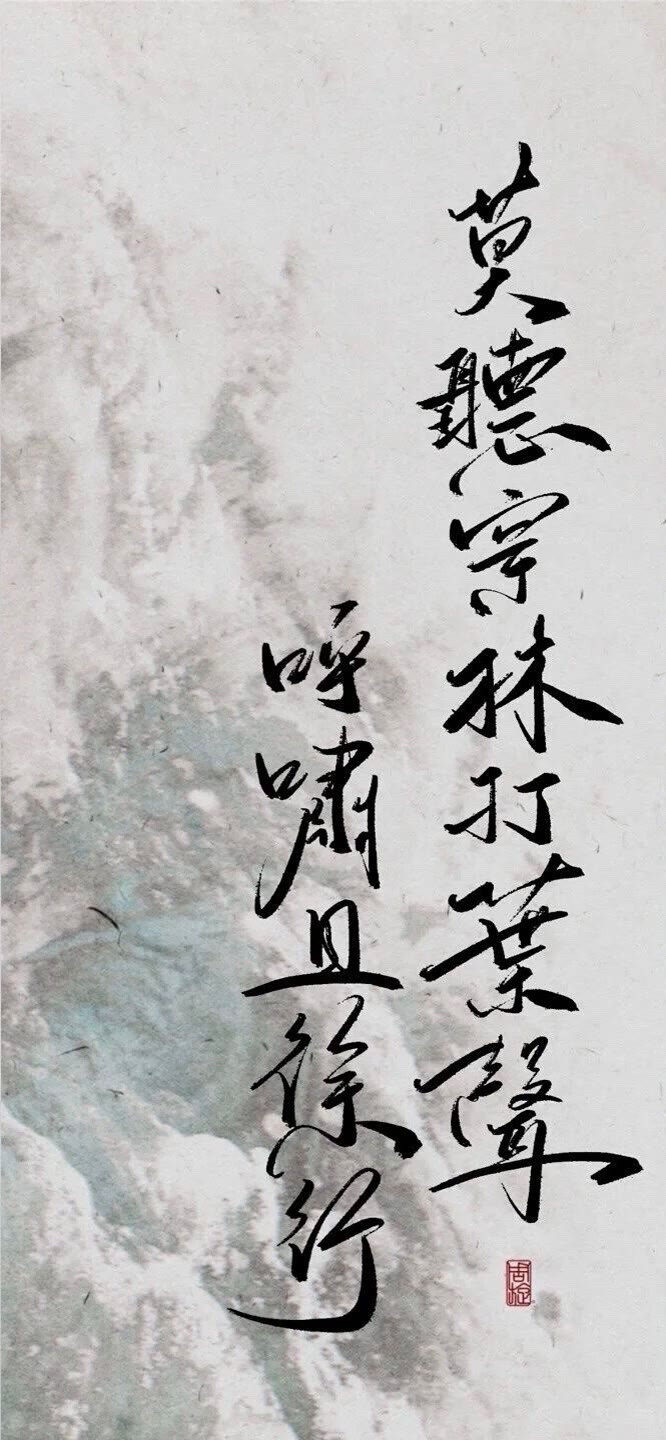 莫聽穿林打葉聲
呼嘯且徐行